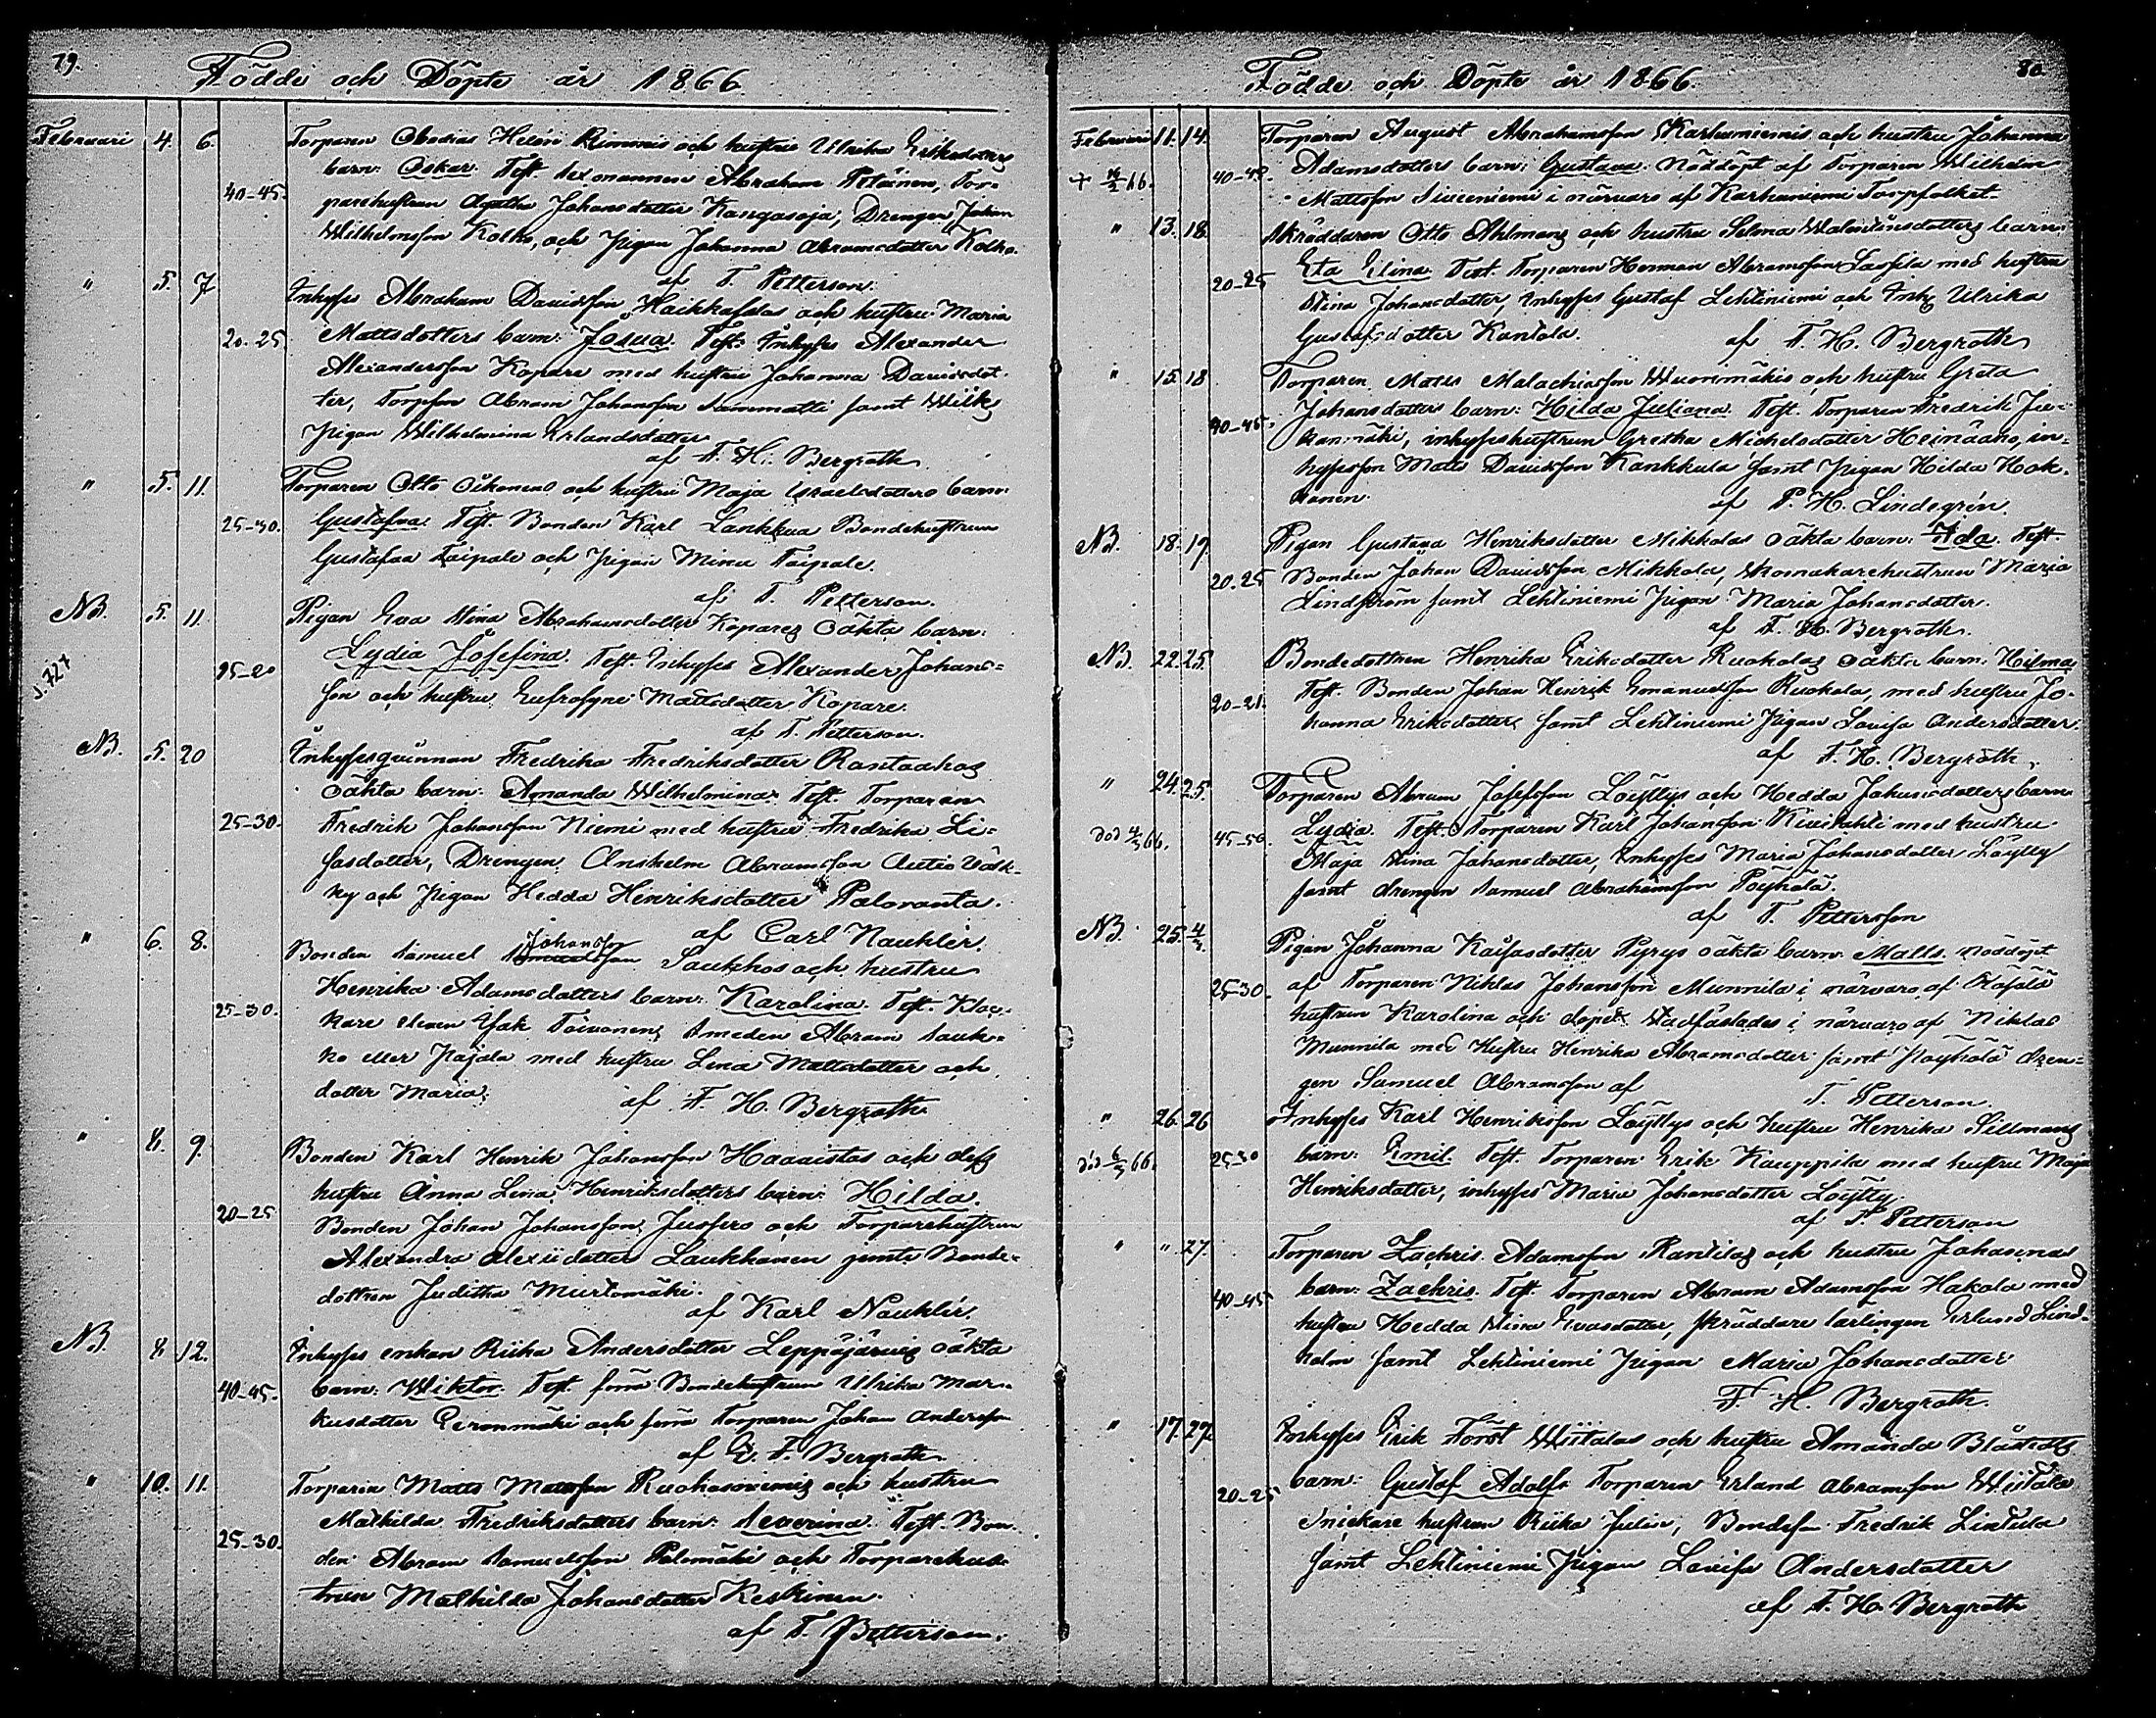 79.
Födde och Döpte år 1866
Februari 4. 6. Torparen Obadias Helén Rimmis och hustru Ulrika Eriksdotters
barn: Oskar. Test. Sexmannen Abraham Tor-
40-45.
parehustrun Agatha Johansdotter Kangasoja, Drengen Johan
Wilhelmsson Kolho, och Pigan Johanna Abramsdotter Kolho.
af T. Petterson.
" 5. 7 Inhyses Abraham Davidsson och hustru Maria
20-25 Mattsdotters barn: Josua. Test. Inhyses Alexander
Alexandersson Kopare med hustru Johanna Davidsdot-
ter, Torpson Abram Johansson Sammatti samt Wilks
Pigan Wilhelmina Erlandsdotter
af F. H. Bergroth
" 5. 11. Torparen Otto och hustru Maja Israelsdotters barn:
25-30. Gustafva. Test. Bonden Karl Lankkua Bondehustrun
Gustafva Taipale och Pigan Mina Taipale.
af T. Petterson.
NB. 5. 11. Pigan Eva Stina Abrahamsdotter Kopares oäkta barn:
s. 727
Lydia Josefina. Test. Inhyses Alexander Johans-
son och hustru Eufrosyne Mattsdotter Kopare.
af T. Petterson.
NB. 5. 20 Inhysesqvinnan Fredrika Fredriksdotter Rantaahos
oäkta barn: Amanda Wilhelmina. Test. Torparen
25-30. Fredrik Johansson Niemi med hustru Fredrika Li-
sasdotter, Drengen Anshelm Abramsson Autio
och Pigan Hedda Henriksdotter Paloranta.
af Carl Nauklér.
" 6. 8. Bonden Samuel Johansson Saukkos och hustru
25-30. Henrika Adamsdotters barn: Karolina. Test. Kloc-
kare eleven Isak Toivonen, Smeden Abram Sauk-
ko eller Pajala med hustru Lena Mattsdotter och
dotter Maria.
af F. H. Bergroth
" 8. 9. Bonden Karl Henrik Johansson Haavistos och dess
hustru Anna Lena Henriksdotters barn: Hilda.
20-25 Bonden Johan Johansson Jussero och Torparehustrun
Alexandra Alexiidotter Laukkonen jemte Bonde-
dottren Juditha Murtomäki.
af Karl Nauklér.
NB. 8 12. Inhyses enkan Riika Andersdotter Leppäjärvis oäkta
40-45. barn: Wiktor. Test. förra Bondehustrun Ulrika Mar-
kusdotter Peronmäki och förra Torparen Johan Andersson
af E. F. Bergroth.
" 10. 11. Torparen Matts Mattsson Ruokosniemis och hustru
Mathilda Fredriksdotters barn: Severina. Test. Bon-
25-30. den Abram Samuelsson Palomäki och Torparehus-
trun Mathilda Johansdotter Keskinen.
af T. Petterson.
80.
Födde och Döpte år 1866.
Februari 11. 14. Torparen August Abrahamsson Karhuniemis och hustru Johanna
40-45. Adamsdotters barn: Gustava. Nöddöpt af Torparen Wilhelm
Mattsson i närvaro af Karhuniemi Torpfolket.
" 13. 18. Skräddaren Otto Ahlmans och hustru Selma Walentinsdotters barn:
20-25 Eta Elina. Test. Torparen Herman Abramsson Lassila med hustru
Stina Johansdotter, Inhyses Gustaf Lehtiniemi och Inh. Ulrika
Gustafsdotter Kantola.
af F. H. Bergroth
" 15. 18 Torparen Matts Malachiasson Wuorimäkis och hustru Greta
40-45. Johansdotters barn: Hilda Juliana. Test. Torparen Fredrik
inhyseshustrun Gretha Michelsdotter Heinäaho, in-
hysesson Matts Davidsson Kankkula samt Pigan Hilda Hok-
kanen.
af P. H. Lindegrén.
NB. 18. 19. Pigan Gustava Henriksdotter Mikkolas oäkta barn: Ida. Test.
20-25 Bonden Johan Davidsson Mikkola, Skomakarehustrun Maria
Lindström samt Lehtiniemi Pigan Maria Johansdotter.
af F. H. Bergroth.
NB. 22. 25. Bondedottren Henrika Eriksdotter Ruokolas oäkta barn: Hilma
20-21. Test. Bonden Johan Henrik Emanuelsson Ruokola, med hustru Jo-
hanna Eriksdotter, samt Lehtiniemi Pigan Lovisa Andersdotter.
af F. H. Bergroth.
" 24. 25. Torparen Abram Josefsson Löyttys och Hedda Johansdotters barn
död 4/3 66. 45-50. Lydia. Test. Torparen Karl Johansson med hustru
Maja Stina Johansdotter, Inhyses Maria Johansdotter Löytty
samt drengen Samuel Abrahamsson Pöyhölä.
af T. Pettersson
NB. 25. 4/3. Pigan Johanna Kaisasdotter Pyrys oäkta barn: Matts. nöddöpt
25-30. af Torparen Niklas Johansson Munnila i närvaro af
hustrun Karolina och dopet stadfästades i närvaro af Niklas
Munnila med hustru Henrika Abramsdotter samt Pöyhölä dren-
gen Samuel Abramsson af T. Petterson.
" 26. 26 Inhyses Karl Henriksson Löyttys och hustru Henrika Sillmans
död 6/3 66. 25-30 barn: Emil. Test. Torparen Erik Kauppila med hustru Maja
Henriksdotter, inhyses Maria Johansdotter Löytty.
af T. Petterson
" " 27. Torparen Zachris Adamsson Rantilas och hustru Johannas
40-45 barn: Zachris. Test. Torparen Abram Adamsson Hakala med
hustru Hedda Stina Evasdotter, skräddare lärlingen Erland Lind-
holm samt Lehtiniemi Pigan Maria Johansdotter
F. H. Bergroth.
" 17. 27. Inhyses Erik Forst Wiitalas och hustru Amanda Blåstedts
20-25 barn: Gustaf Adolf. Torparen Erland Abramsson Wiitala
Snickare hustrun Riika Julin, Bondeson Fredrik Lintula
samt Lehtiniemi Pigan Lovisa Andersdotter
af F. H. Bergroth